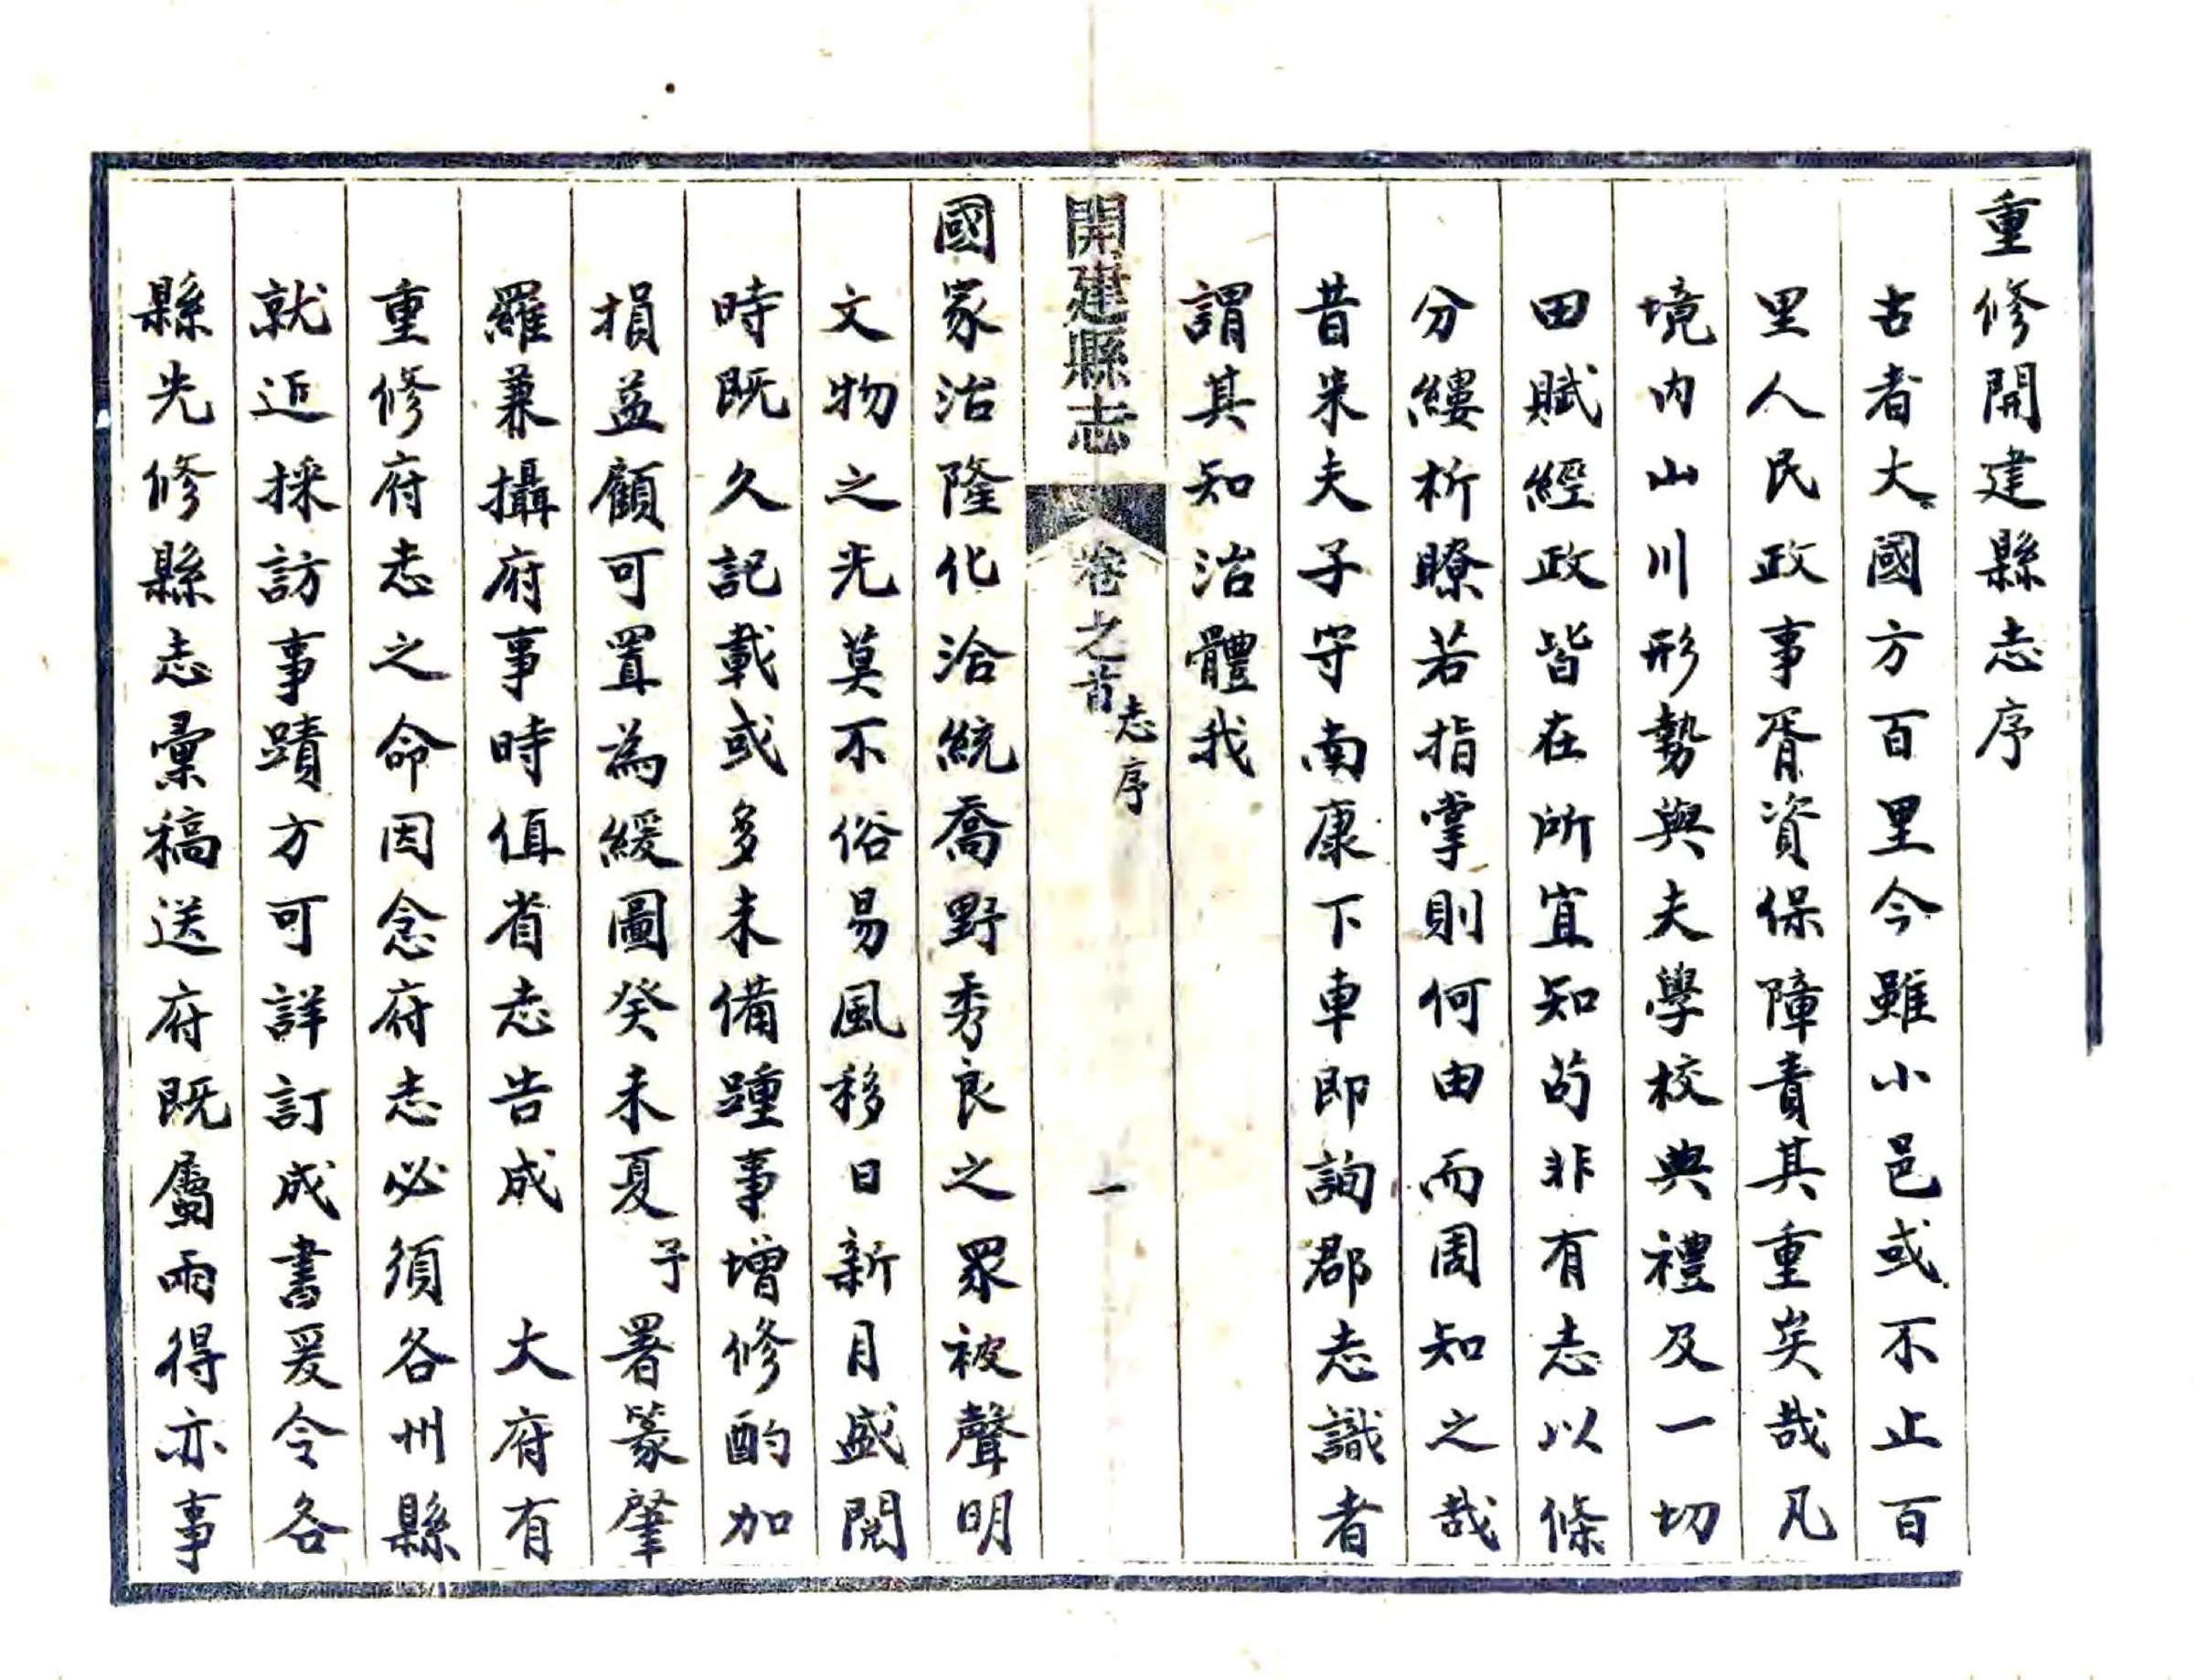 重修開建縣志序
古者大國方百里今雖小邑或不止百
里人民政事胥資保障責其重矣哉凡
境内山川形勢與夫學校典禮及一切
田賦經政皆在所宜知苟非有志以條
分縷析瞭若指掌則何由而周知之哉
昔朱夫子守南康下車即詢郡志識者
謂其知治體我
開建縣志
卷之首
志序
一
國家治隆化洽統喬野秀良之眾被聲明
文物之光莫不俗易風移日新月盛閱
時既久記載或多未備踵事增修酌加
損益顧可置為緩圖癸未夏予署篆肇
羅兼攝府事時值省志告成 大府有
重修府志之命因念府志必須各州縣
就近採訪事蹟方可詳訂成書爰令各
縣先修縣志彙稿送府既屬兩得亦事